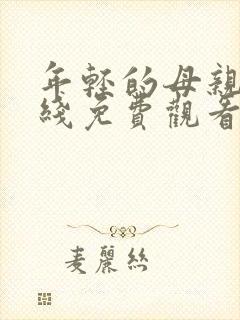 年轻的母親
綫免費觀看
麦麗絲